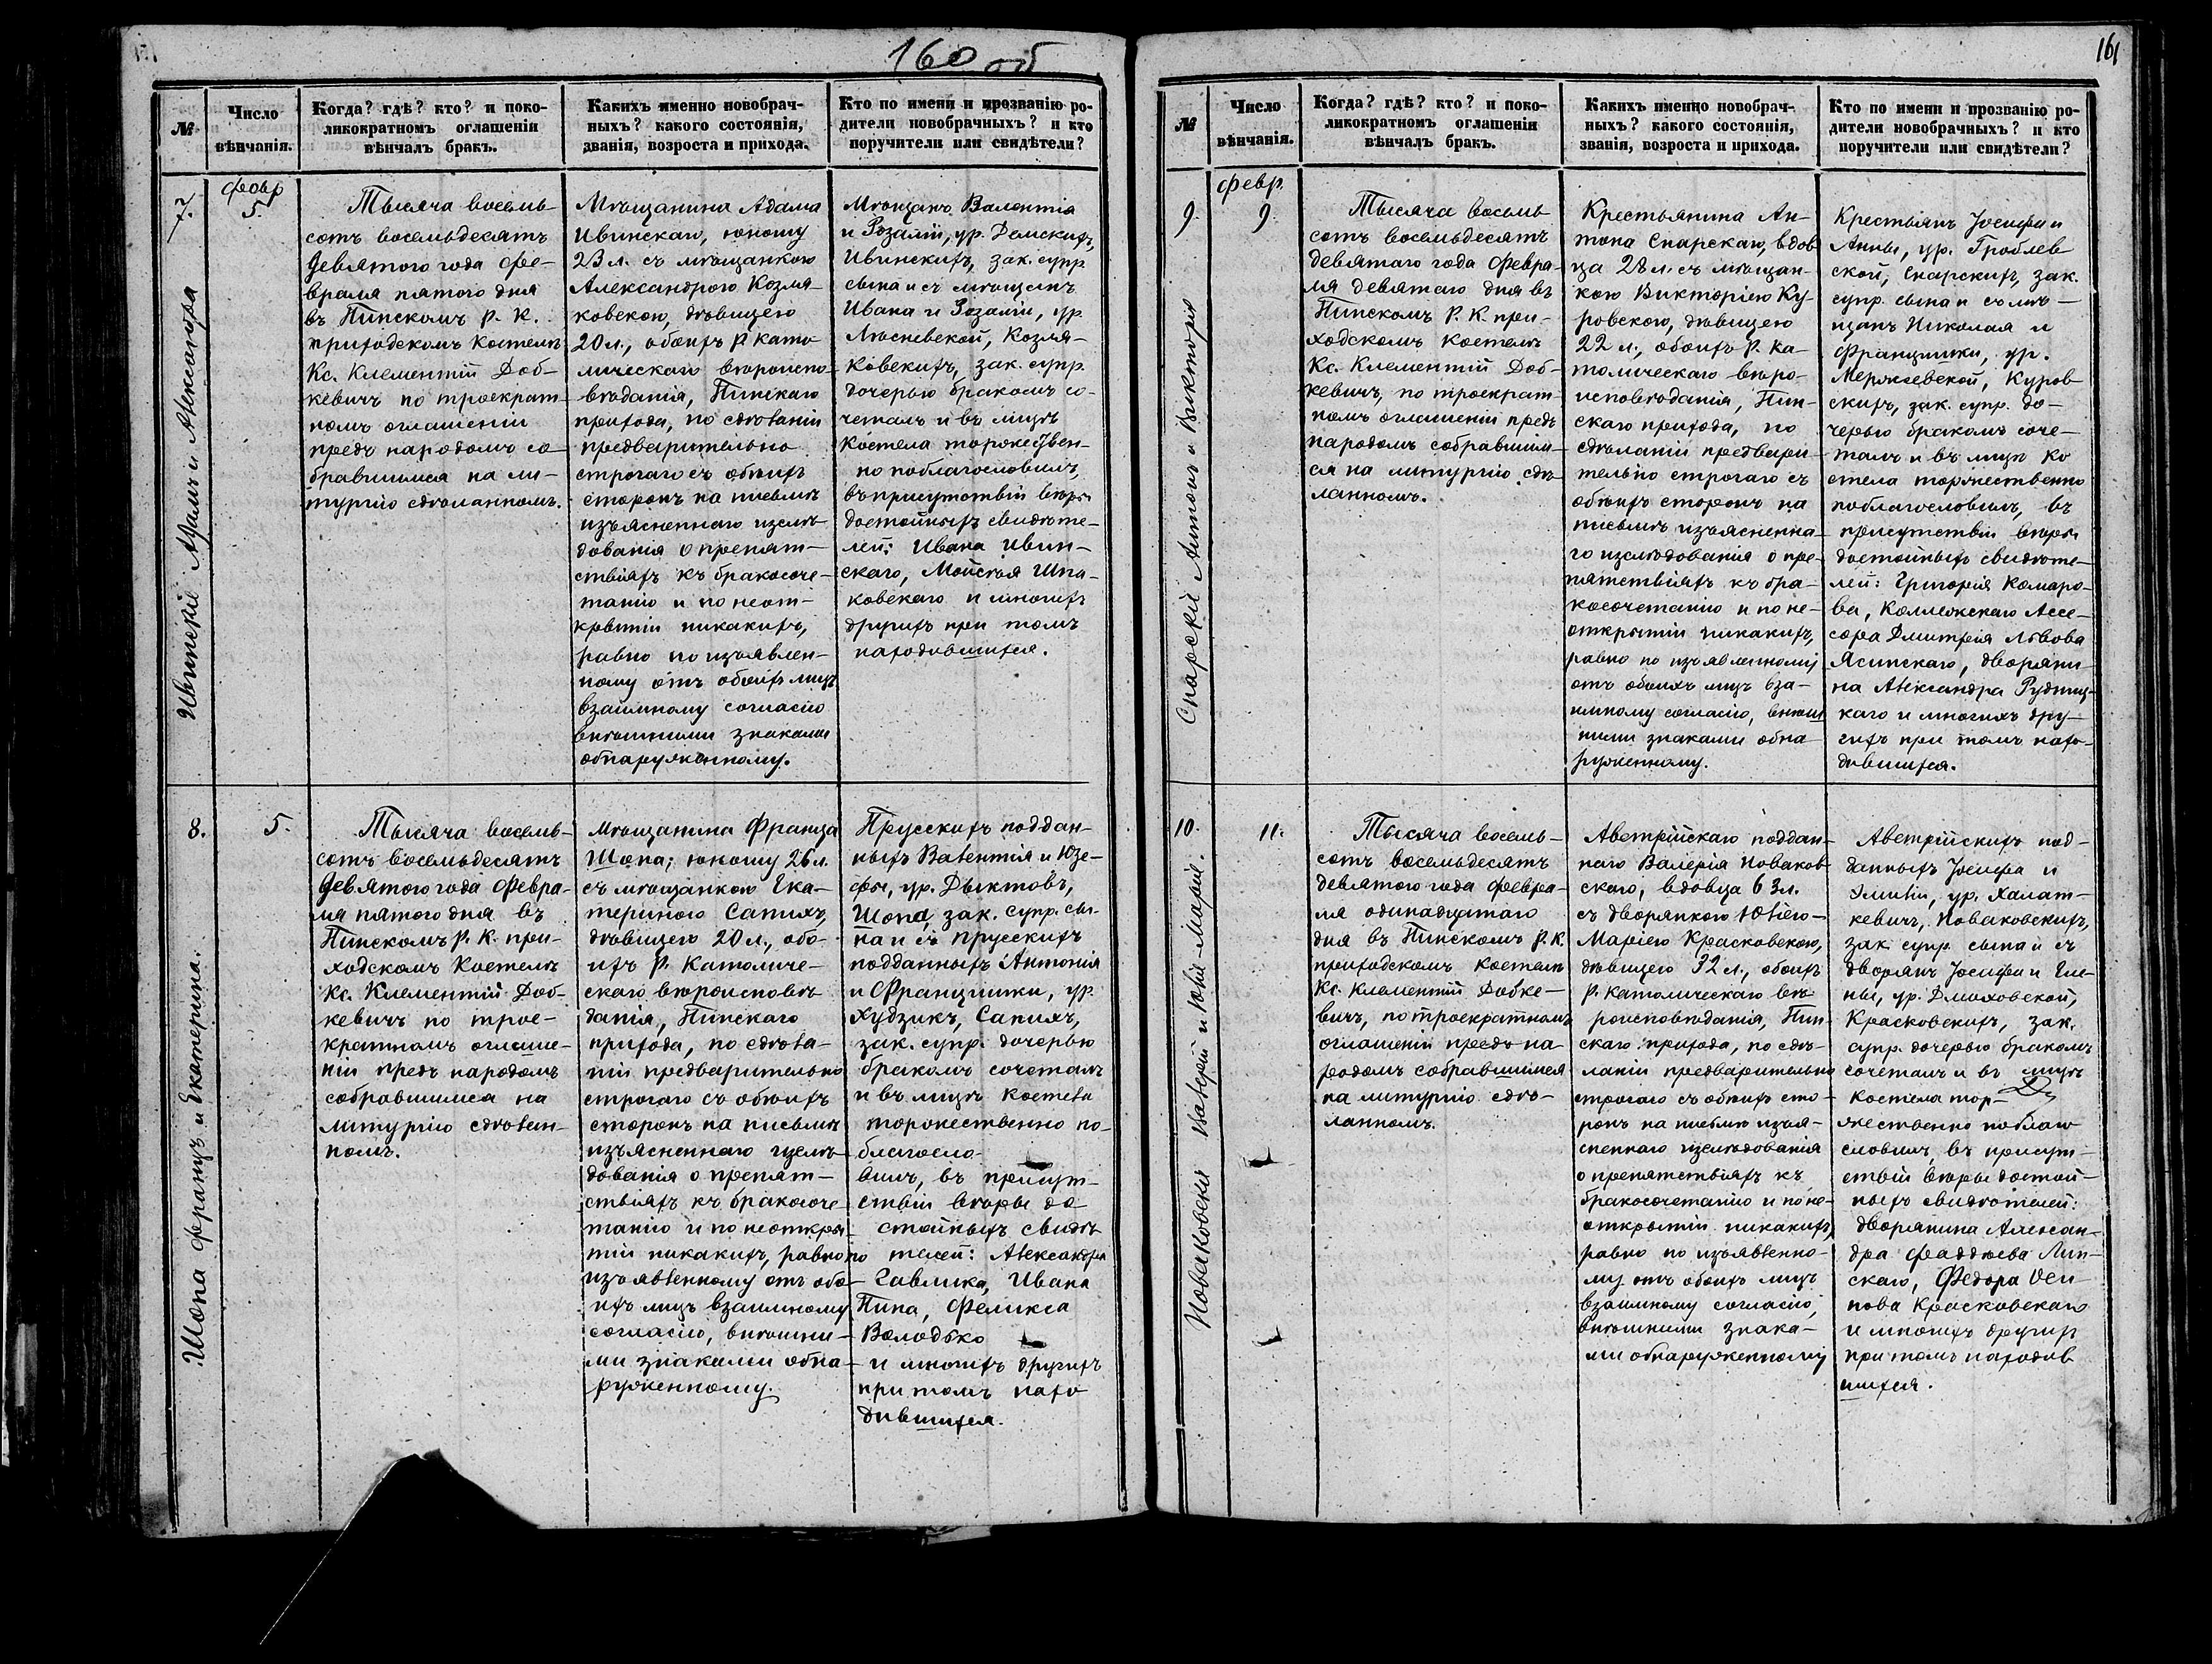 160 об
№
Число
вѣнчанія.
Когда? гдѣ? кто? и поко-
ликократномъ оглашеніи
вѣнчалъ бракъ.
Какихъ именно новобрач-
ныхъ? какого состоянія,
званія, возроста и прихода.
Кто по имени и прозванію ро-
дители новобрачныхъ? и кто
поручители или свидѣтели?
7.
Ивинскіе Адамъ и Александра
февр
5.
Тысяча восемь-
сотъ восемьдесятъ
девятого года фе-
враля пятого дня
въ Пинскомъ Р. К.
приходскомъ костелѣ
Кс. Клементій Доб-
кевичъ по троекрат-
номъ оглашеніи
предъ народомъ со
бравшимся на ли-
тургію сдѣланномъ.
Мѣщанина Адама
Ивинскаго, юношу
23 л. съ мѣщанкою
Александрою Козля-
ковскою, дѣвицею
20 л., обоихъ Р. като
лическаго вѣроиспо-
вѣданія, Пинскаго
прихода, по сдѣланіи
предварительно
строгаго съ обѣихъ
сторонъ на письмѣ
изъясненнаго изслѣ-
дованія о препят-
ствіяхъ къ бракосоче-
танію и по неот-
крытіи никакихъ,
равно по изъявлен-
ному отъ обоихъ лицъ
взаимному согласію
внѣшними знаками
обнаруженному.
Мѣщанъ Валентія
и Розаліи, ур. Демскихъ,
Ивинскихъ, зак. супр.
сына и съ мѣщанъ
Ивана и Розаліи, ур.
Лѣсневской, Козля-
ковскихъ, зак. супр.
дочерью бракомъ со-
четалъ и въ лицѣ
костела торжествен-
но поблагословилъ,
въ присутствіи вѣры
достойныхъ свидѣте-
лей: Ивана Ивин-
скаго, Моисея Шпа-
ковскаго и многихъ
другихъ при томъ
находившихся.
8.
Шопа Францъ и Екатерина.
5.
Тысяча восемь-
сотъ восемьдесятъ
девятого года февра-
ля пятого дня въ
Пинскомъ Р. К. при-
ходскомъ костелѣ
Кс. Клементій Доб-
кевичъ по трое-
кратномъ оглаше-
ніи предъ народомъ
собравшимся на
литургію сдѣлан-
номъ.
Мѣщанина Франца
Шопа, юношу 26 л.
съ мѣщанкою Ека-
териною Сапихъ,
дѣвицею 20 л., обо-
ихъ Р. Католиче-
скаго вѣроисповѣ
данія, Пинскаго
прихода, по сдѣла-
ніи предварительно
строгаго съ обѣихъ
сторонъ на письмѣ
изъясненнаго изслѣ-
дованія о препят-
ствіяхъ къ бракосоче
танію и по неоткры
тіи никакихъ, равно по
изъявленному отъ обо-
ихъ лицъ взаимному
согласію, внѣшни-
ми знаками обна-
руженному.
Прусскихъ поддан-
ныхъ Валентія и Юзе-
фы, ур. Дыктовъ,
Шопа, зак. супр. сы-
на и съ прусскихъ
подданныхъ Антонія
и Францишки, ур.
Худзикъ, Сапихъ,
зак. супр. дочерью
бракомъ сочеталъ
и въ лицѣ костела
торжественно по-
благосло-
вилъ, въ присут-
ствіи вѣры до
стойныхъ свидѣ
телей: Александра
Гавлика, Ивана
Пипа, Феликса
Володько
и многихъ другихъ
при томъ нахо
дившихся.
161
№
Число
вѣнчанія.
Когда? гдѣ? кто? и поко-
ликократномъ оглашеніи
вѣнчалъ бракъ.
Какихъ именно новобрач-
ныхъ? какого состоянія,
званія, возроста и прихода.
Кто по имени и прозванію ро-
дители новобрачныхъ? и кто
поручители или свидѣтели?
9.
Снарскіе Антонъ и Викторія
февр.
9
Тысяча восемь
сотъ восемьдесятъ
девятаго года февра-
ля девятаго дня въ
Пинскомъ Р. К. при-
ходскомъ костелѣ
Кс. Клементій Доб-
кевичъ, по троекрат-
номъ оглашеніи предъ
народомъ собравшим-
ся на литургію сдѣ-
ланномъ.
Крестьянина Ан-
тона Снарскаго, вдов
ца 28 л. съ мѣщан-
кою Викторіею Ку-
ровскою, дѣвицею
22 л., обоихъ Р. Ка-
толическаго вѣро-
исповѣданія, Пин-
скаго прихода, по
сдѣланіи предвари-
тельно строгаго съ
обѣихъ сторонъ на
письмѣ изъясненна-
го изслѣдованія о пре-
пятствіяхъ къ бра-
косочетанію и по не-
открытіи никакихъ,
равно по изъявленному
отъ обоихъ лицъ вза-
имному согласію, внѣш
ними знаками обна
руженному.
Крестьянъ Іосифа и
Анны, ур. Гроблев
ской, Снарскихъ, зак.
супр. сына и съ мѣ-
щанъ Николая и
Францишки, ур.
Мержеевской, Куров-
скихъ, зак. супр. до-
черью бракомъ соче-
талъ и въ лицѣ ко
стела торжественно
поблагословилъ, въ
присутствіи вѣры
достойныхъ свидѣте-
лей: Григорія Комаро-
ва, Коллежскаго Ассе-
сора Дмитрія Львова
Ясинскаго, дворяни-
на Александра Рудниц-
каго и многихъ дру-
гихъ при томъ нахо-
дившихся.
10.
Новаковскіе Валерій и Юлія-Марія.
11.
Тысяча восемь-
сотъ восемьдесятъ
девятого года февра-
ля одинадцатаго
дня въ Пинскомъ Р. К.
приходскомъ костелѣ
Кс. Клементій Добке-
вичъ, по троекратномъ
оглашеніи предъ на-
родомъ собравшимся
на литургію сдѣ-
ланномъ.
Австрійскаго поддан-
наго Валерія Новаков-
скаго, вдовца 63 л.
съ дворянкою Юліею-
Маріею Красковскою,
дѣвицею 32 л., обоихъ
Р. Католическаго вѣ-
роисповѣданія, Пин-
скаго прихода, по сдѣ-
ланіи предварительно
строгаго съ обѣихъ сто-
ронъ на письмѣ изъя-
сненнаго изслѣдованія
о препятствіяхъ къ
бракосочетанію и по не-
открытіи никакихъ,
равно по изъявленно-
му отъ обоихъ лицъ
взаимному согласію,
внѣшними знака-
ми обнаруженному
Австрійскихъ под-
данныхъ Іосифа и
Эмиліи, ур. Халат-
кевичъ, Новаковскихъ,
зак. супр. сына и съ
дворянъ Іосифа и Еле-
ны, ур. Дмоховской,
Красковскихъ, зак.
супр. дочерью бракомъ
сочеталъ и въ лицѣ
костела тор-
жественно поблаго
словилъ, въ присут-
ствіи вѣры достой-
ныхъ свидѣтелей:
дворянина Алексан-
дра Фаддѣева Лип-
скаго, Федора
Красковскаго
и многихъ другихъ
при томъ находив
шихся.